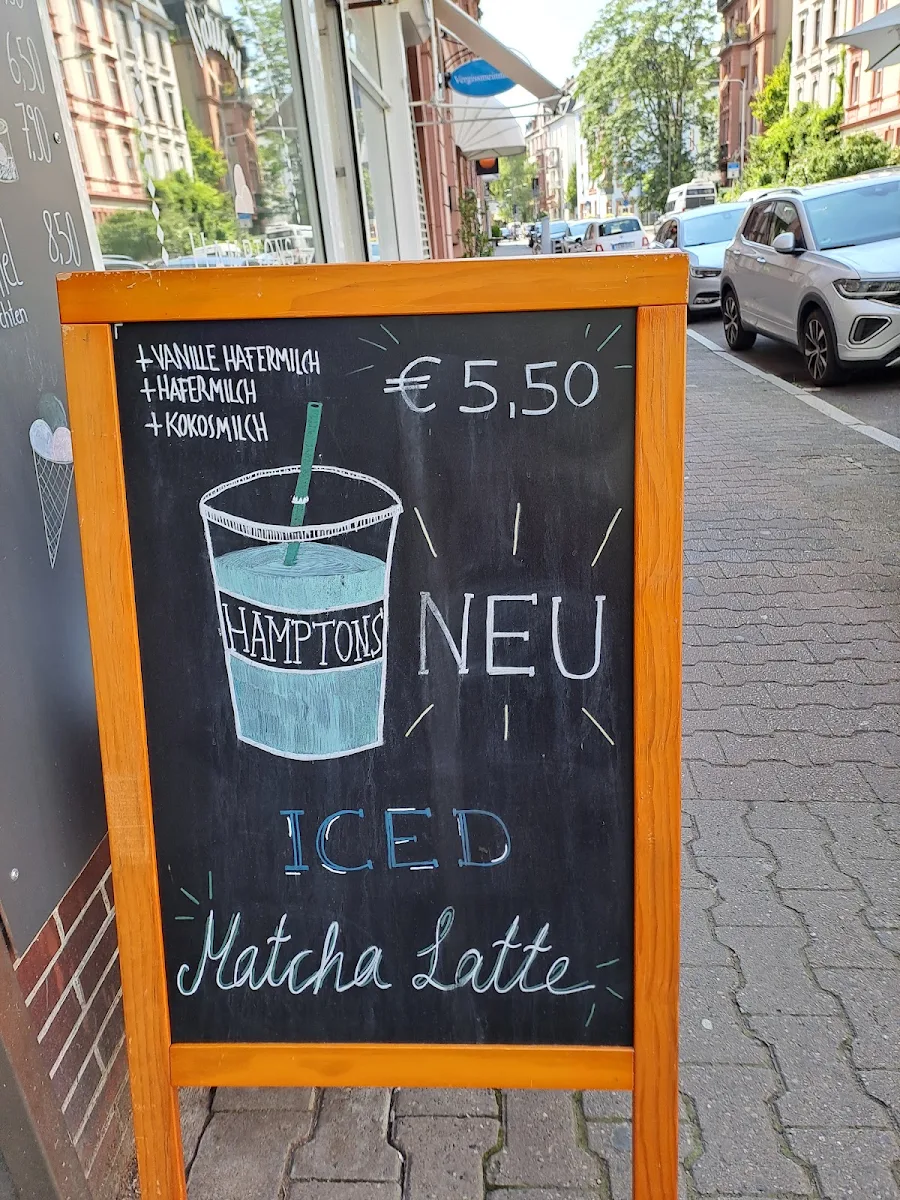 650
790
850
Vergissmeinnicht
+ VANILLE HAFERMILCH
+ HAFERMILCH
+ KOKOSMILCH
€ 5,50
HAMPTONS
NEU
ICED
Matcha Latte